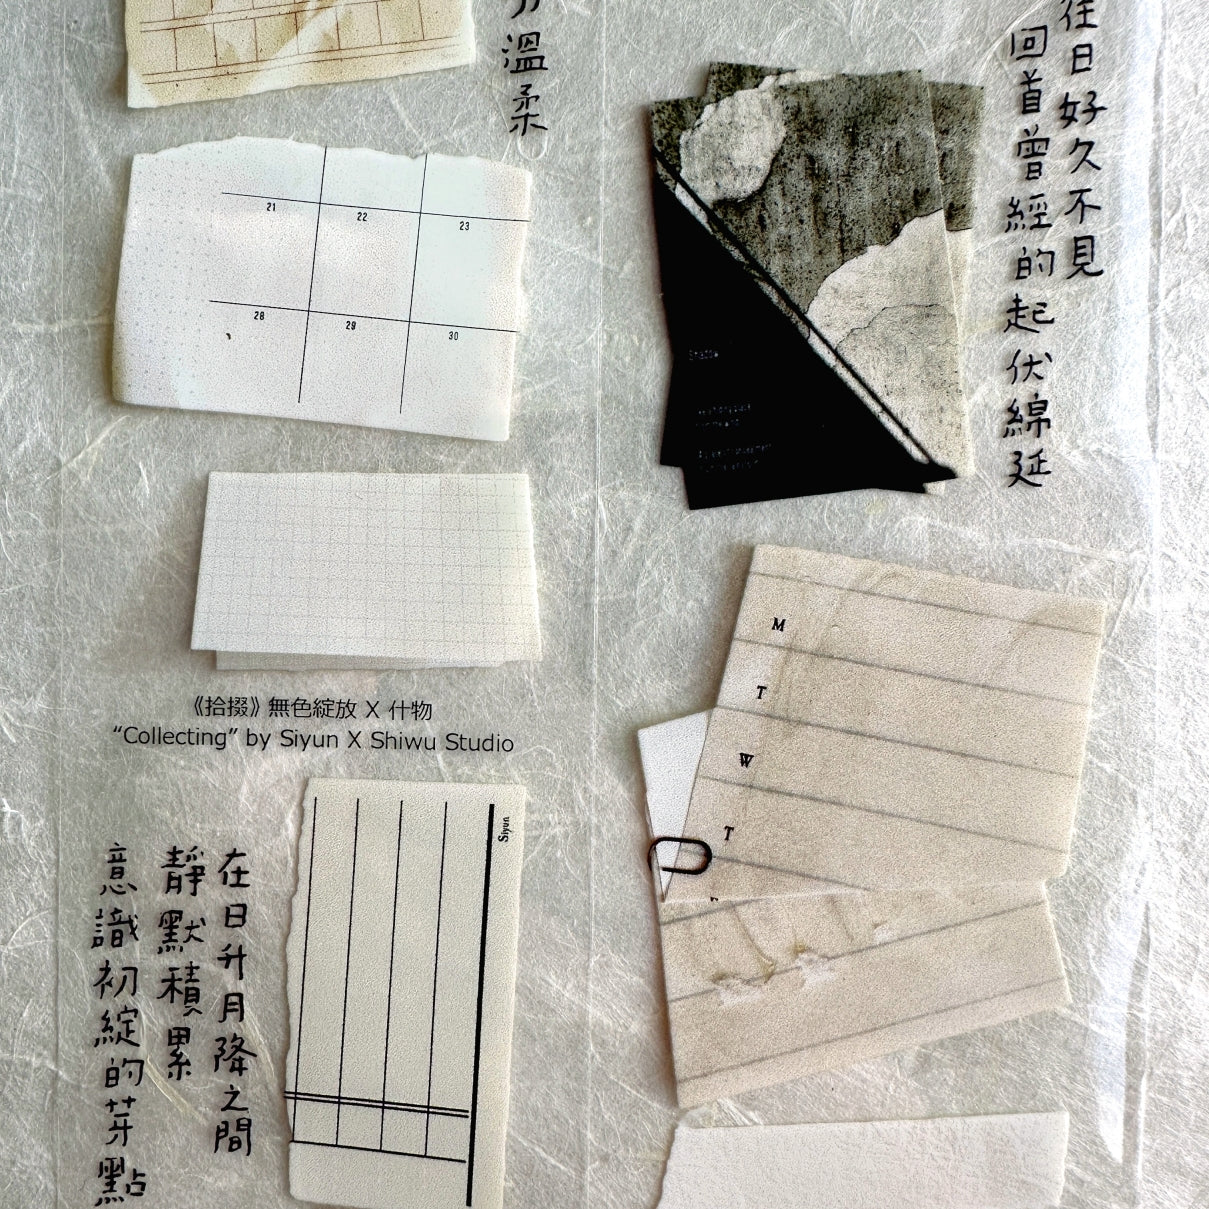 溫柔
往日好久不見
回首曾經的起伏綿延
21
22
23
28
29
30
Shadow
M
T
W
T
《拾掇》無色綻放 X 什物
“Collecting” by Siyun X Shiwu Studio
Siyun
在日升月降之間
靜默積累
意識初綻的芽點